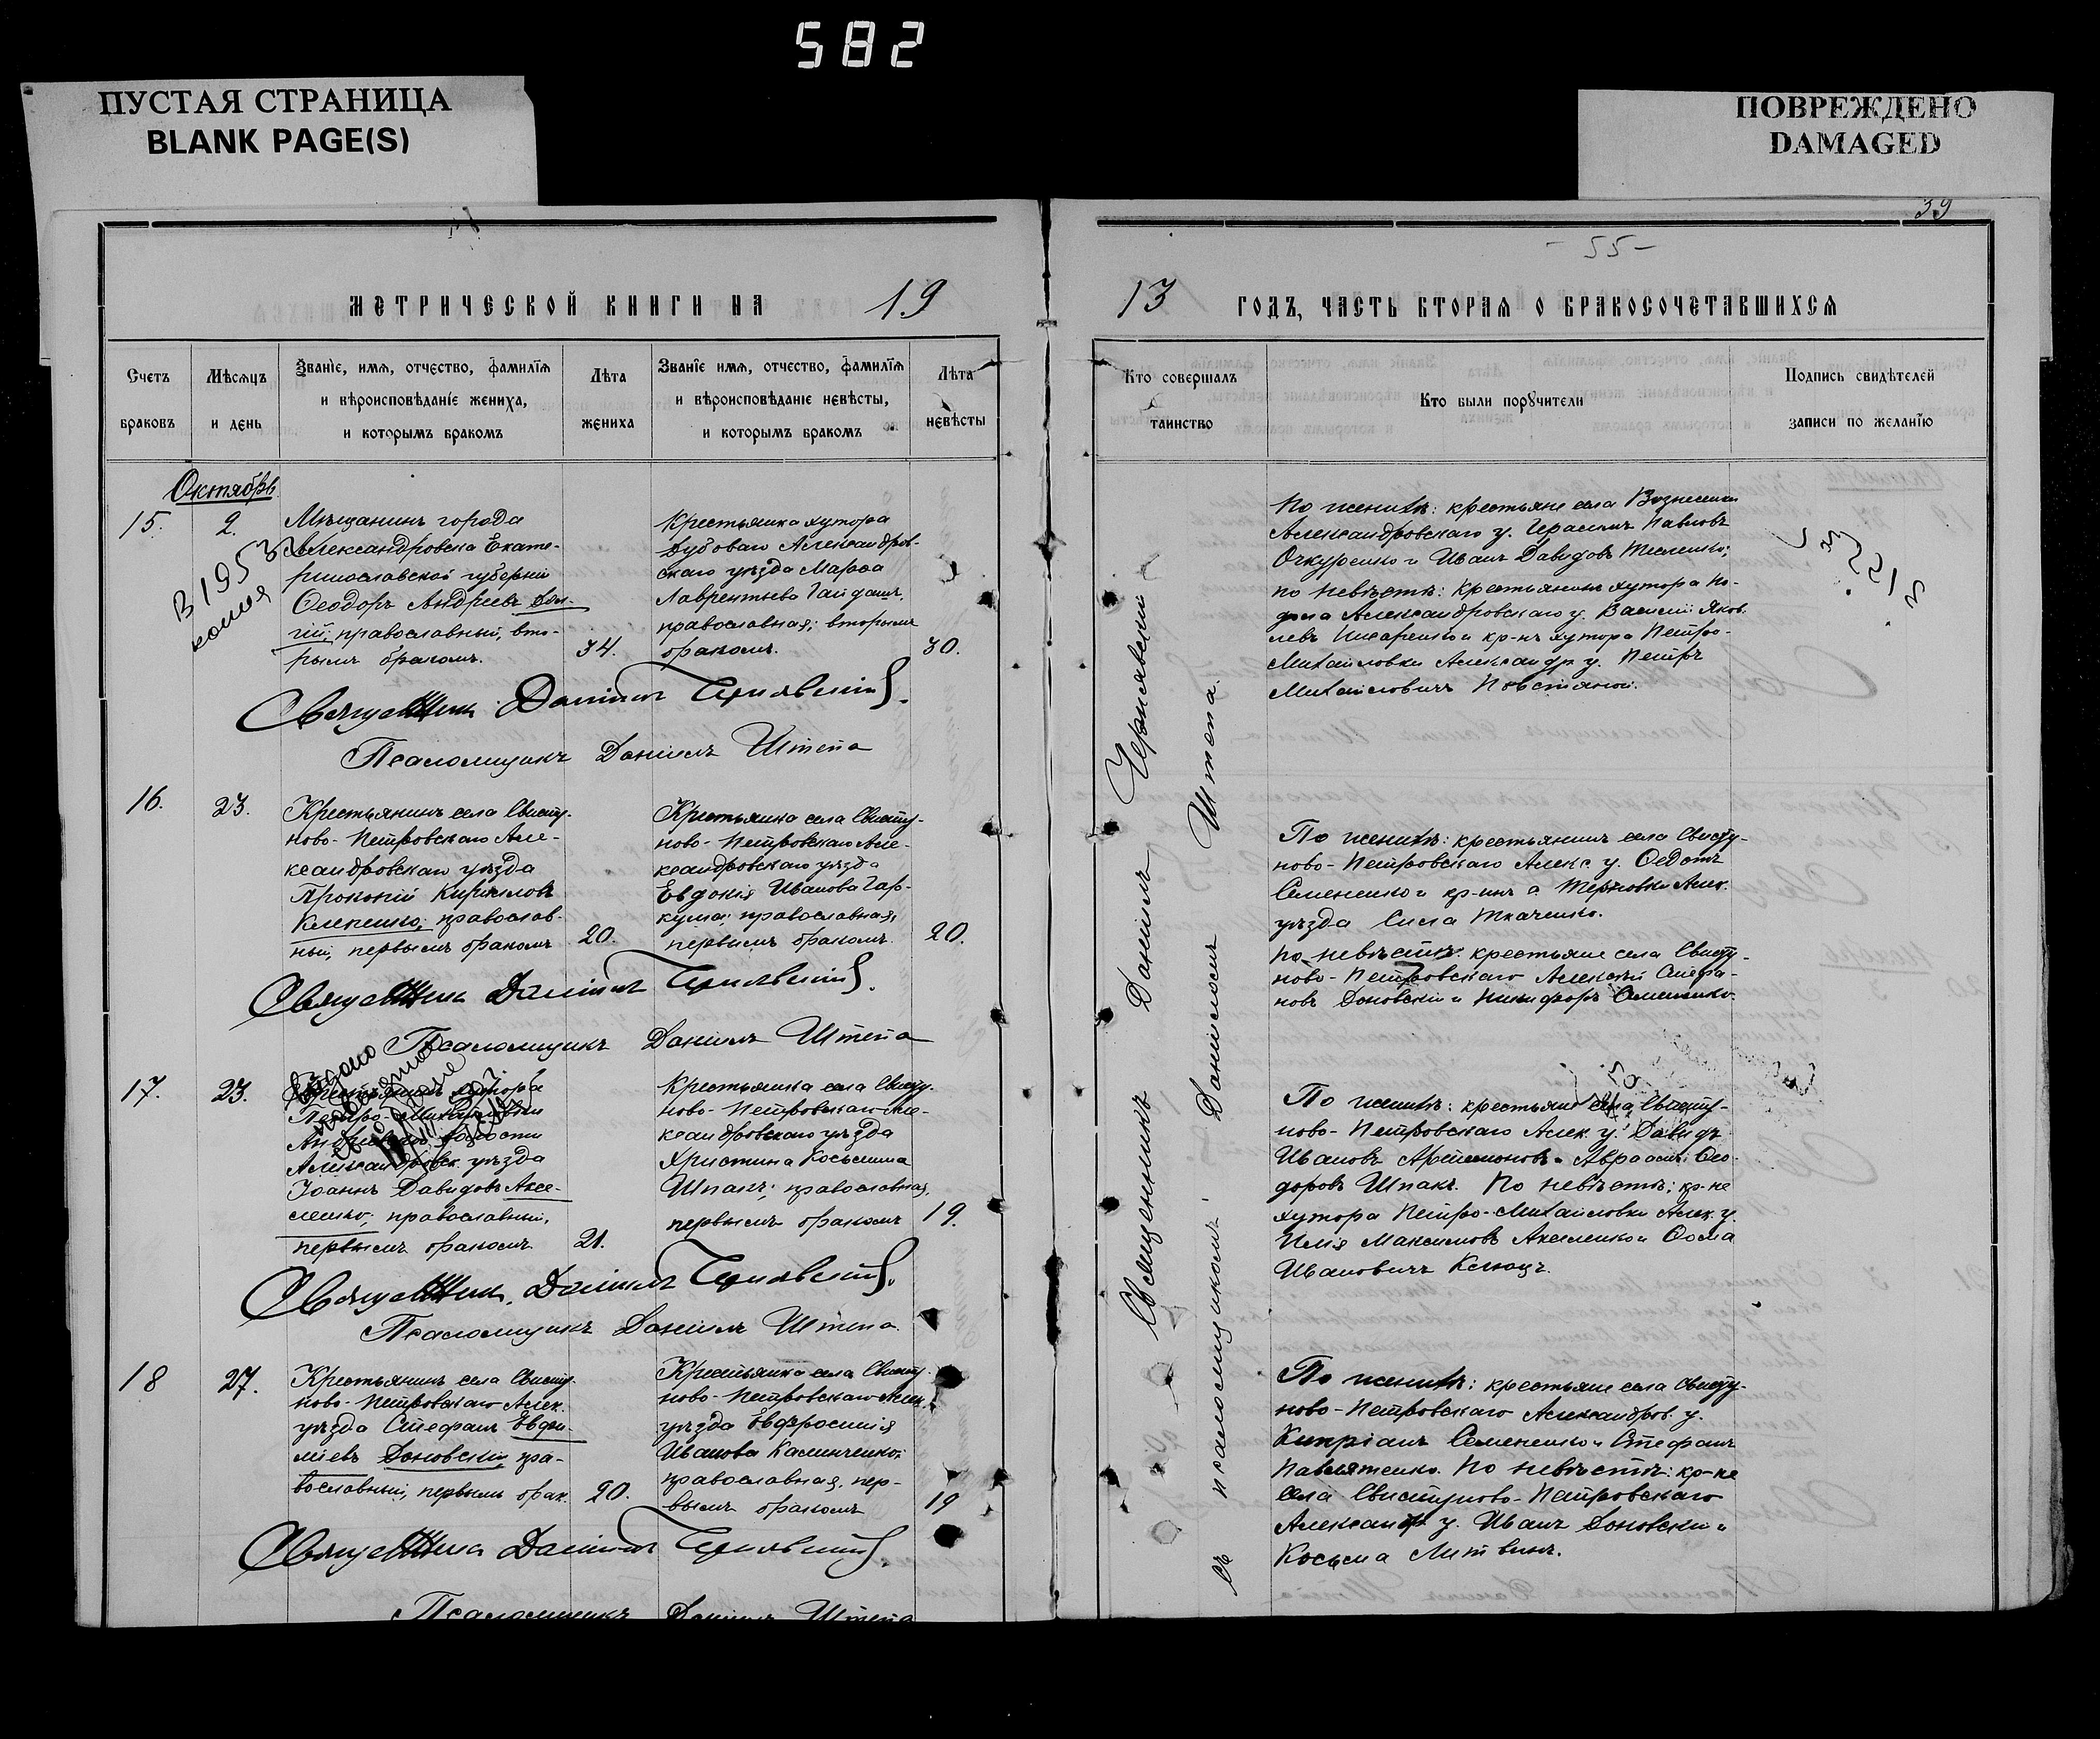 582
ПУСТАЯ СТРАНИЦА
BLANK PAGE(S)
ПОВРЕЖДЕНО
DAMAGED
39
- 55 -
МЕТРИЧЕСКОЙ КНИГИ НА 19
13 ГОДЪ, ЧАСТЬ ВТОРАЯ О БРАКОСОЧЕТАВШИХСЯ
Счетъ браковъ
Мѣсяцъ и день
Званіе, имя, отчество, фамилія
и вѣроисповѣданіе жениха,
и которымъ бракомъ
Лѣта жениха
Званіе, имя, отчество, фамилія
и вѣроисповѣданіе невѣсты,
и которымъ бракомъ
Лѣта невѣсты
Кто совершалъ таинство
Кто были поручители
Подпись свидѣтелей
записи по желанію
Октябрь
15.
2.
Мѣщанинъ города
Александровска Екате-
ринославской губерніи
Ѳеодоръ Андреевъ
православный, вто-
рымъ бракомъ.
34.
Крестьянка хутора
Дубоваго Александров-
скаго уѣзда Марѳа
Лаврентьева
православная; вторымъ
бракомъ.
30.
В 1953
копія
По женихѣ: крестьяне села
Александровскаго у. Герасимъ Павловъ
Очкуренко и Иванъ Давидовъ
по невѣстѣ: крестьянинъ хутора
Александровскаго у. Василій Яков-
левъ Писаренко и кр-нъ хутора Петро-
Михайловки Александр у. Петръ
Михайловичъ Повстяной.
Священникъ Даніилъ Чернявскій.
Псаломщикъ Даніилъ Штепа
16.
23.
Крестьянинъ села Свисту-
ново-Петровскаго Але-
ксандровскаго уѣзда
Прокопій Кирилловъ
православ-
ный, первымъ бракомъ
20.
Крестьянка села Свисту-
ново-Петровскаго Але-
ксандровскаго уѣзда
Евдокія Иванова Гар-
куша; православная,
первымъ бракомъ.
20.
По женихѣ: крестьянинъ села Свисту-
ново-Петровскаго Алекс. у. Ѳедотъ
Семененко и кр-инъ с. Терновки Алек.
уѣзда Сила Ткаченко.
по невѣстѣ: крестьяне села Свисту-
ново-Петровскаго Алексѣй Стефа-
новъ Доновскій и Никифоръ
Священникъ Даніилъ Чернявскій.
Псаломщикъ Даніилъ Штепа
17.
23.
Крестьянинъ хутора
Петро-Михайловки
волости
Александровск. уѣзда
Іоаннъ Давидовъ Аксе-
ленко; православный,
первымъ бракомъ.
21.
Крестьянка села Свисту-
ново-Петровскаго Але-
ксандровскаго уѣзда
Христина Косьмина
Шпакъ; православная,
первымъ бракомъ
19.
По женихѣ: крестьяне села Свисту-
ново-Петровскаго Алек. у. Давидъ
Ивановъ Артемоновъ и Авраамъ Ѳео-
доровъ Шпакъ. По невѣстѣ: кр-не
хутора Петро-Михайловки Алек. у.
Илія Максимовъ Акселенко и Ѳома
Ивановичъ
Священникъ Даніилъ Чернявскій.
Псаломщикъ Даніилъ Штепа
18
27.
Крестьянинъ села Свисту-
ново-Петровскаго Алек.
уѣзда Стефанъ Евфи-
міевъ Доновскій, пра-
вославный, первымъ брак.
20.
Крестьянка села Свисту-
ново-Петровскаго Алек.
уѣзда Евфросинія
Иванова Калиниченко;
православная, пер-
вымъ бракомъ
19
По женихѣ: крестьяне села Свисту-
ново-Петровскаго Александров. у.
Кипріанъ Семененко и Стефанъ
По невѣстѣ: кр-не
села Свистуново-Петровскаго
Александр у. Иванъ Доновскій и
Косьма Литвинъ.
Священникъ Даніилъ Чернявскій.
Псаломщикъ Даніилъ Штепа
Священникъ Даніилъ Чернявскій
съ псаломщикомъ Даніиломъ Штепа.